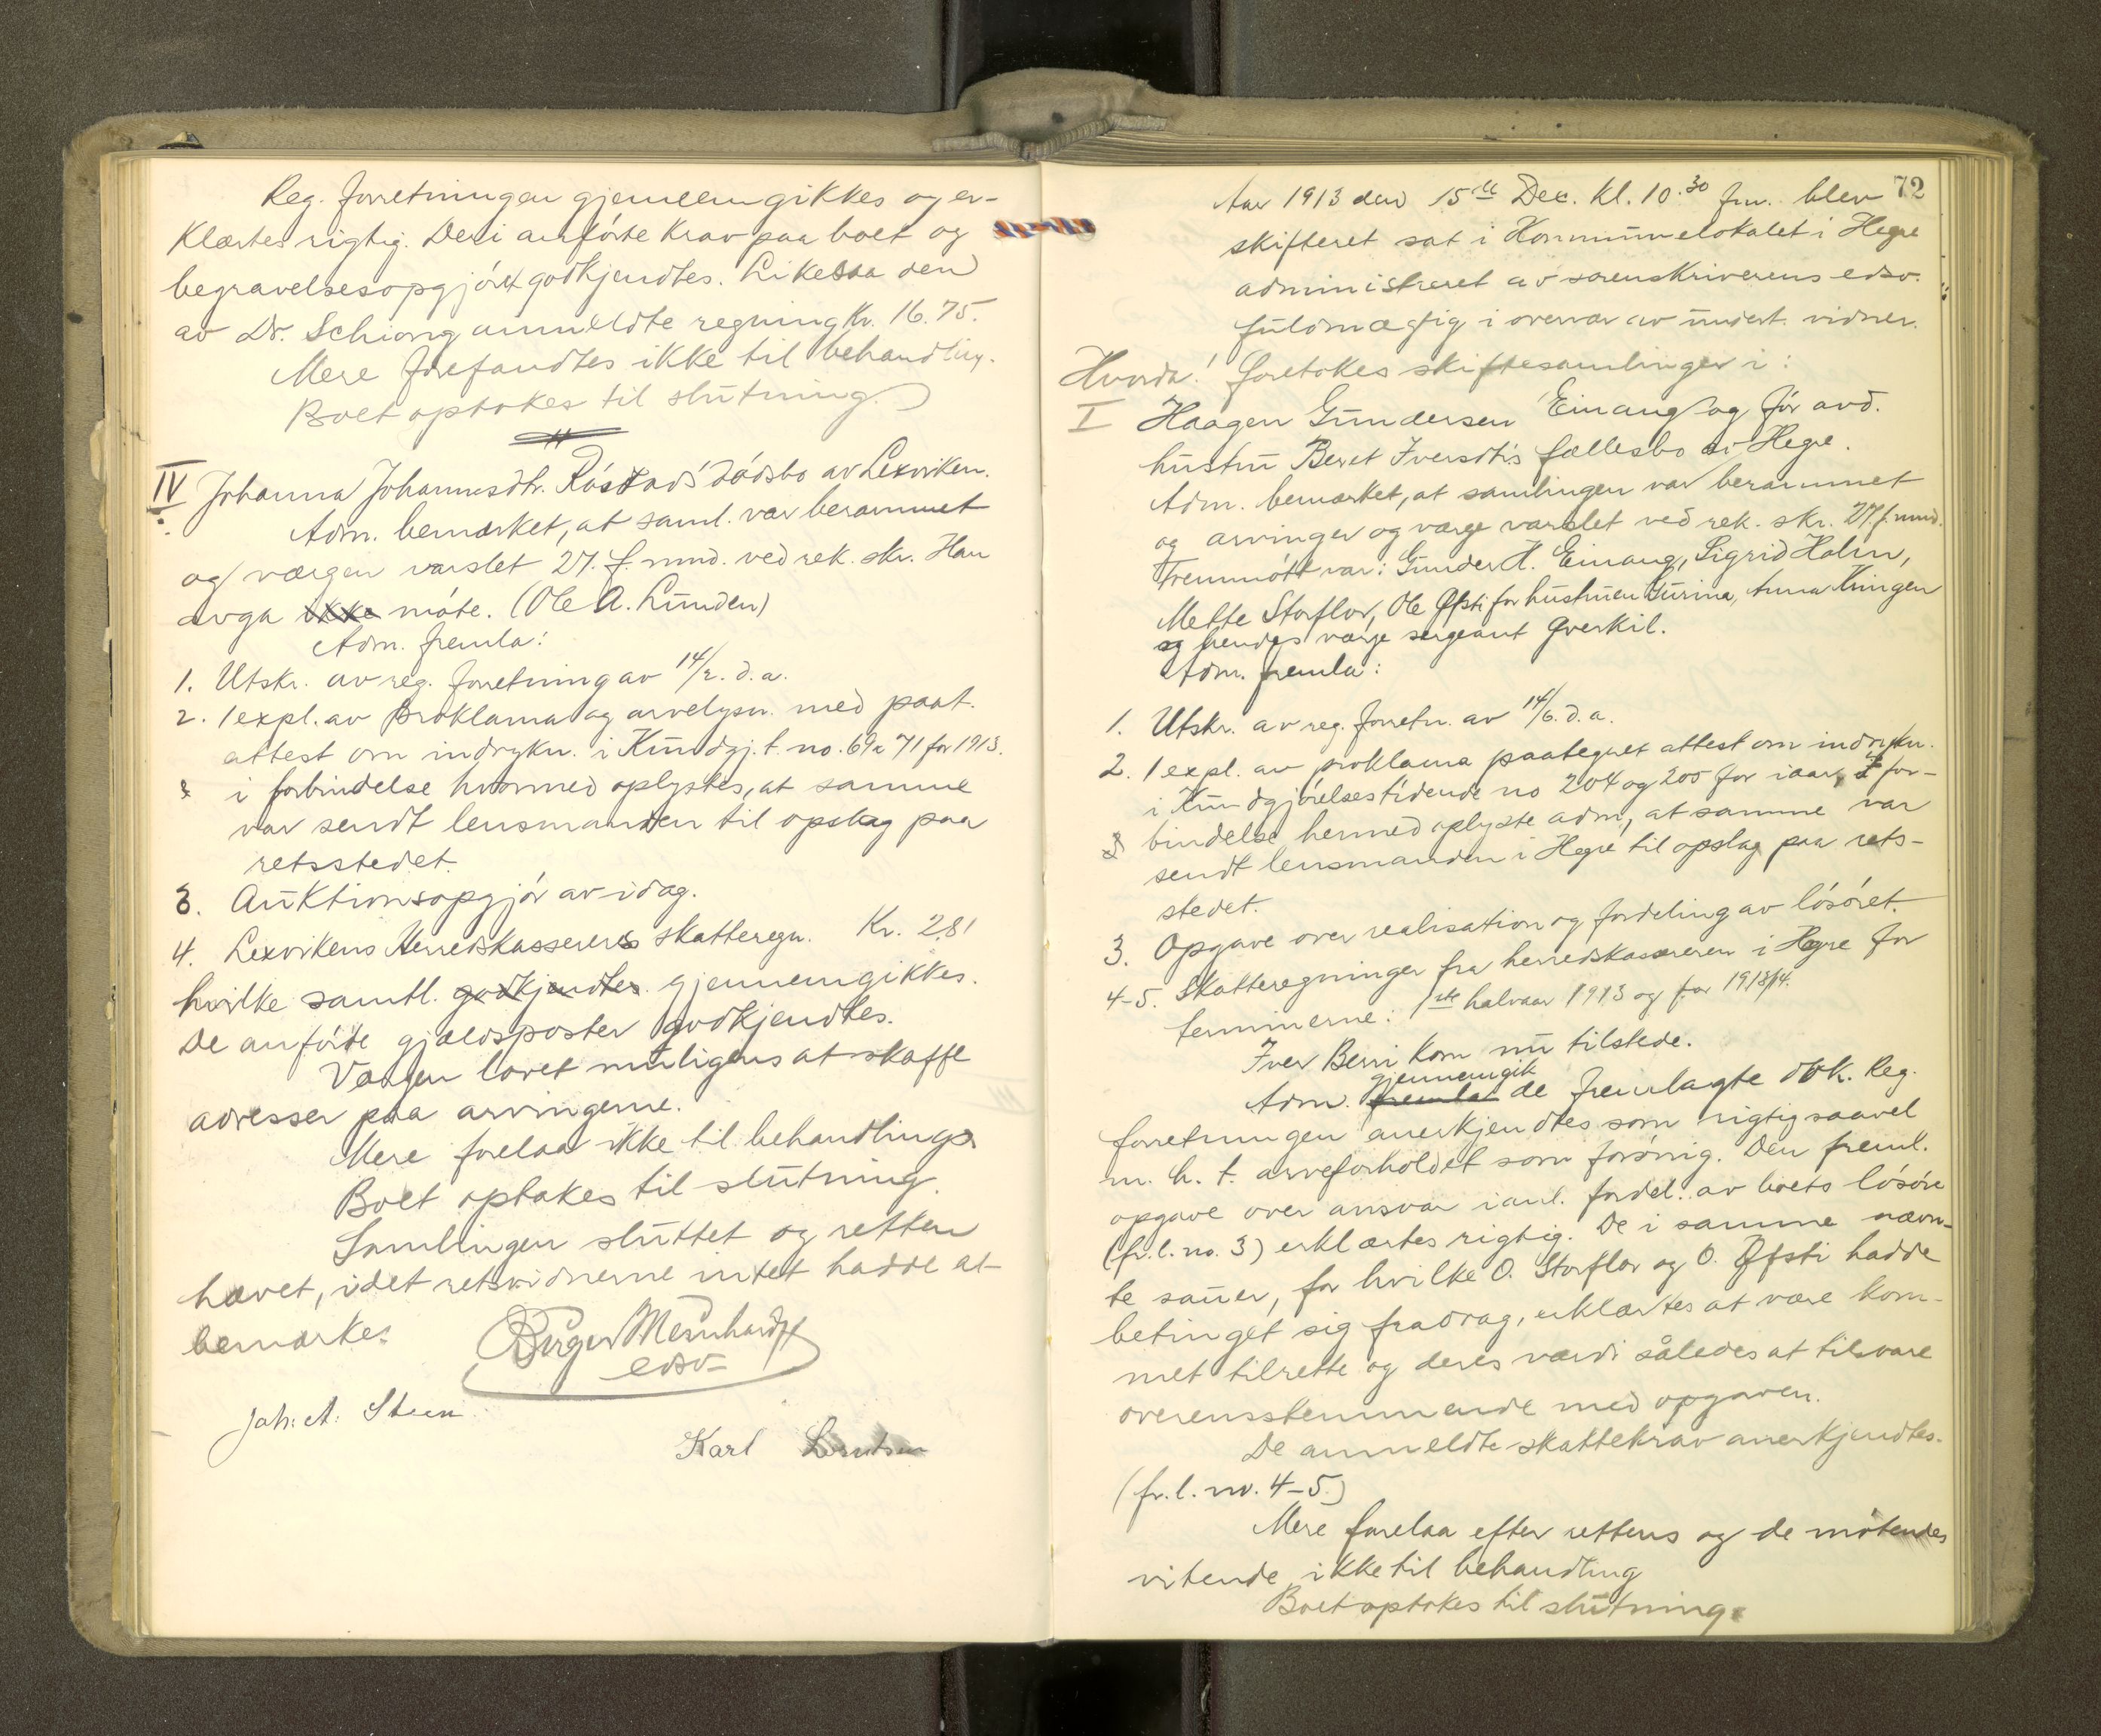 Reg. forretningen gjennemgikkes og er-
klærtes rigtig. De i anførte krav paa boet og
begravelsesopgjöret godkjendtes. Likesaa den
av Dr. Schiong anmeldte regning Kr. 16.75.
Mere forefandtes ikke til behandling.
Boet optokes til slutning.
IV Johanna Johannesdtr. Röstads dödsbo av Lexviken.
Adm. bemærket, at saml. var berammet
og værgen varslet 27. f. mnd. ved rek. skr. Han
avga ikke möte. (Ole A. Lunden)
Adm. fremla:
1. Utskr. av reg. forretning av 14/2. d. a.
2. 1 expl. av proklama og arvelysn. med paat.
attest om indrykn. i Kundgj. t. no. 69 a 71 for 1913.
3 i forbindelse hvormed oplystes, at samme
var sendt lensmanden til opslag paa
retsstedet.
3. Auktionsopgjör av idag.
4. Lexvikens Herredskasserers skatteregn. Kr. 2.81
hvilke samtl. godkjendtes. gjennemgikkes.
De anförte gjældsposter godkjendtes.
Værgen lovet muligens at skaffe
adresser paa arvingerne.
Mere forelaa ikke til behandling.
Boet optokes til slutning.
Samlingen sluttet og retten
hævet, idet retsvidnerne intet hadde at
bemærke.
Birger Meinhardt
edsv
Joh: A: Steen
Karl
72
Aar 1913 den 15de Dec. kl. 10.30 fm. blev
skifteret sat i Kommunelokalet i Hegre
administreret av sorenskriverens edsv.
fuldmægtig i overvær av undert. vidner.
Hvorda! Foretokes skiftesamlinger i:
I Haagen Gundersen Einang og før avd.
hustru Beret Iversdt's fællesbo i Hegre.
Adm. bemærket, at samlingen var berammet
og arvinger og værge varslet ved rek. skr. 27. f. mnd.
Fremmött var: Gunder H. Einang, Sigrid Holm,
Mette Storflor, Ole Öfsti for hustruen Gurina, Anna Kringen
og hendes værge sergeant Qverkil.
Adm. fremla:
1. Utskr. av reg. forretn. av 14/6. d. a.
2. 1 expl. av proklama paategnet attest om indrykn.
i Kundgjörelsestidende no 204 og 205 for iaar, I for-
3 bindelse hermed oplyste adm, at samme var
sendt lensmanden i Hegre til opslag paa rets-
stedet.
3. Opgave over realisation og fordeling av lösöret.
4-5. Skatteregninger fra herredskassereren i Hegre for
terminerne: 1ste halvaar 1913 og for 1913/14.
Iver Berri kom nu tilstede.
gjennemgik
Adm. fremla de fremlagte dok. Reg.
forretningen anerkjendtes som rigtig saavel
m. h. t. arveforholdet som forövrig. Den freml.
opgave over ansvar i anl. fordel. av boets lösöre
(fr. l. no. 3) erklærtes rigtig. De i samme nævn-
te sauer, for hvilke O. Storflor og O. Öfsti hadde
betinget sig fradrag, erklærtes at være kom-
met tilrette og deres værdi således at tilsvare
overensstemmende med opgaven.
De anmeldte skattekrav anerkjendtes.
(fr. l. no. 4-5)
Mere forelaa efter rettens og de mötendes
vitende ikke til behandling
Boet optokes til slutning.